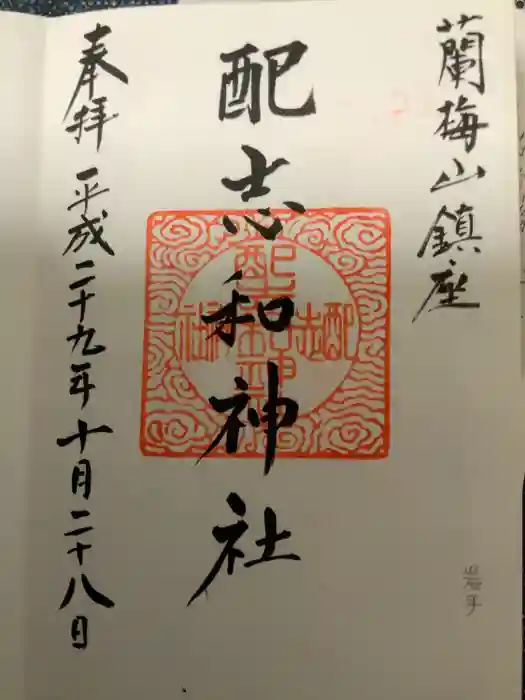 蘭梅山鎮座
配志和神社
奉拝 平成二十九年十月二十八日
岩手